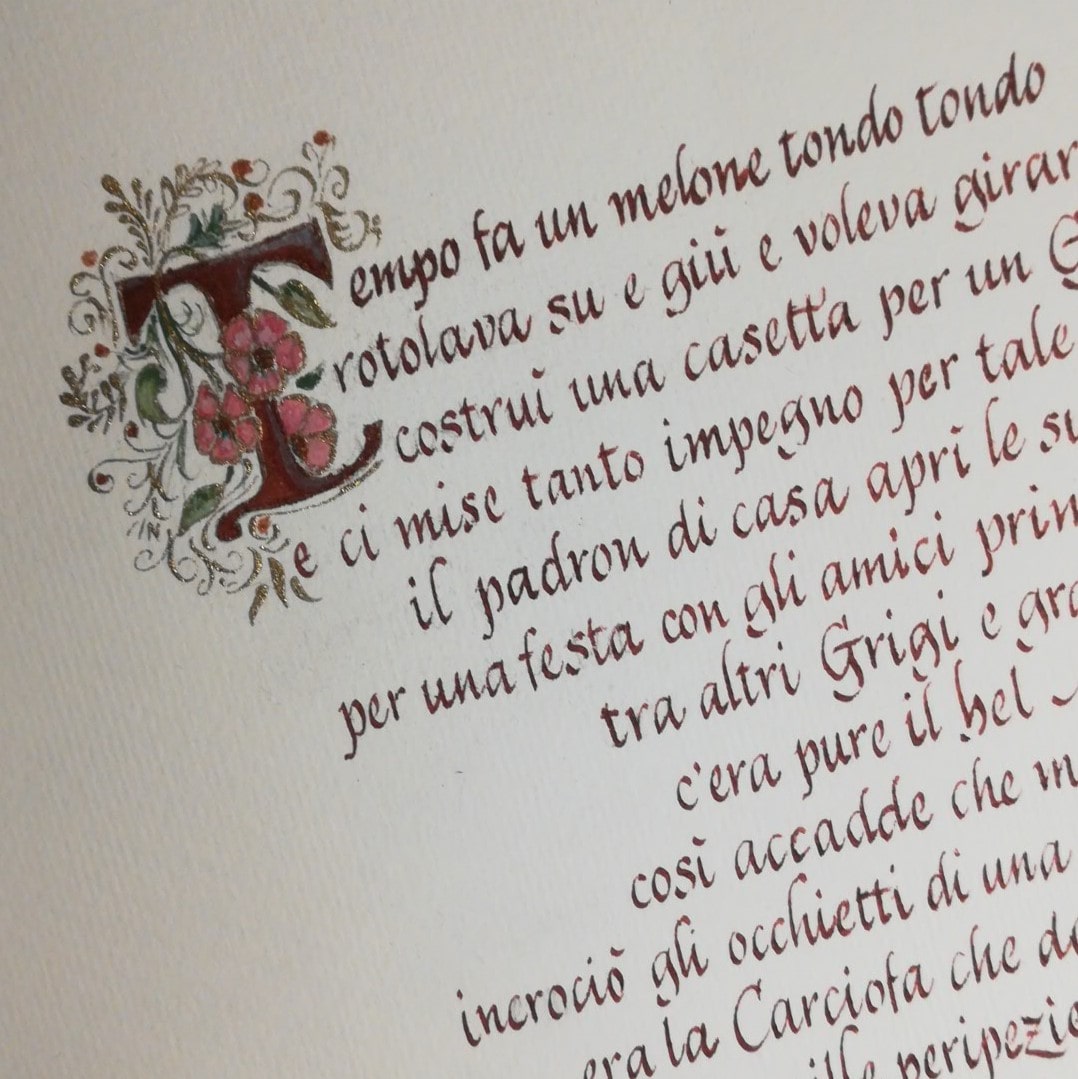 Tempo fa un melone tondo tondo
rotolava su e giù e voleva girar
costruì una casetta per un
e ci mise tanto impegno per tale
il padron di casa aprì le
per una festa con gli amici
tra altri Grigi e
c'era pure il bel
così accadde che
incrociò gli occhietti di una
era la Carciofa che
peripezie